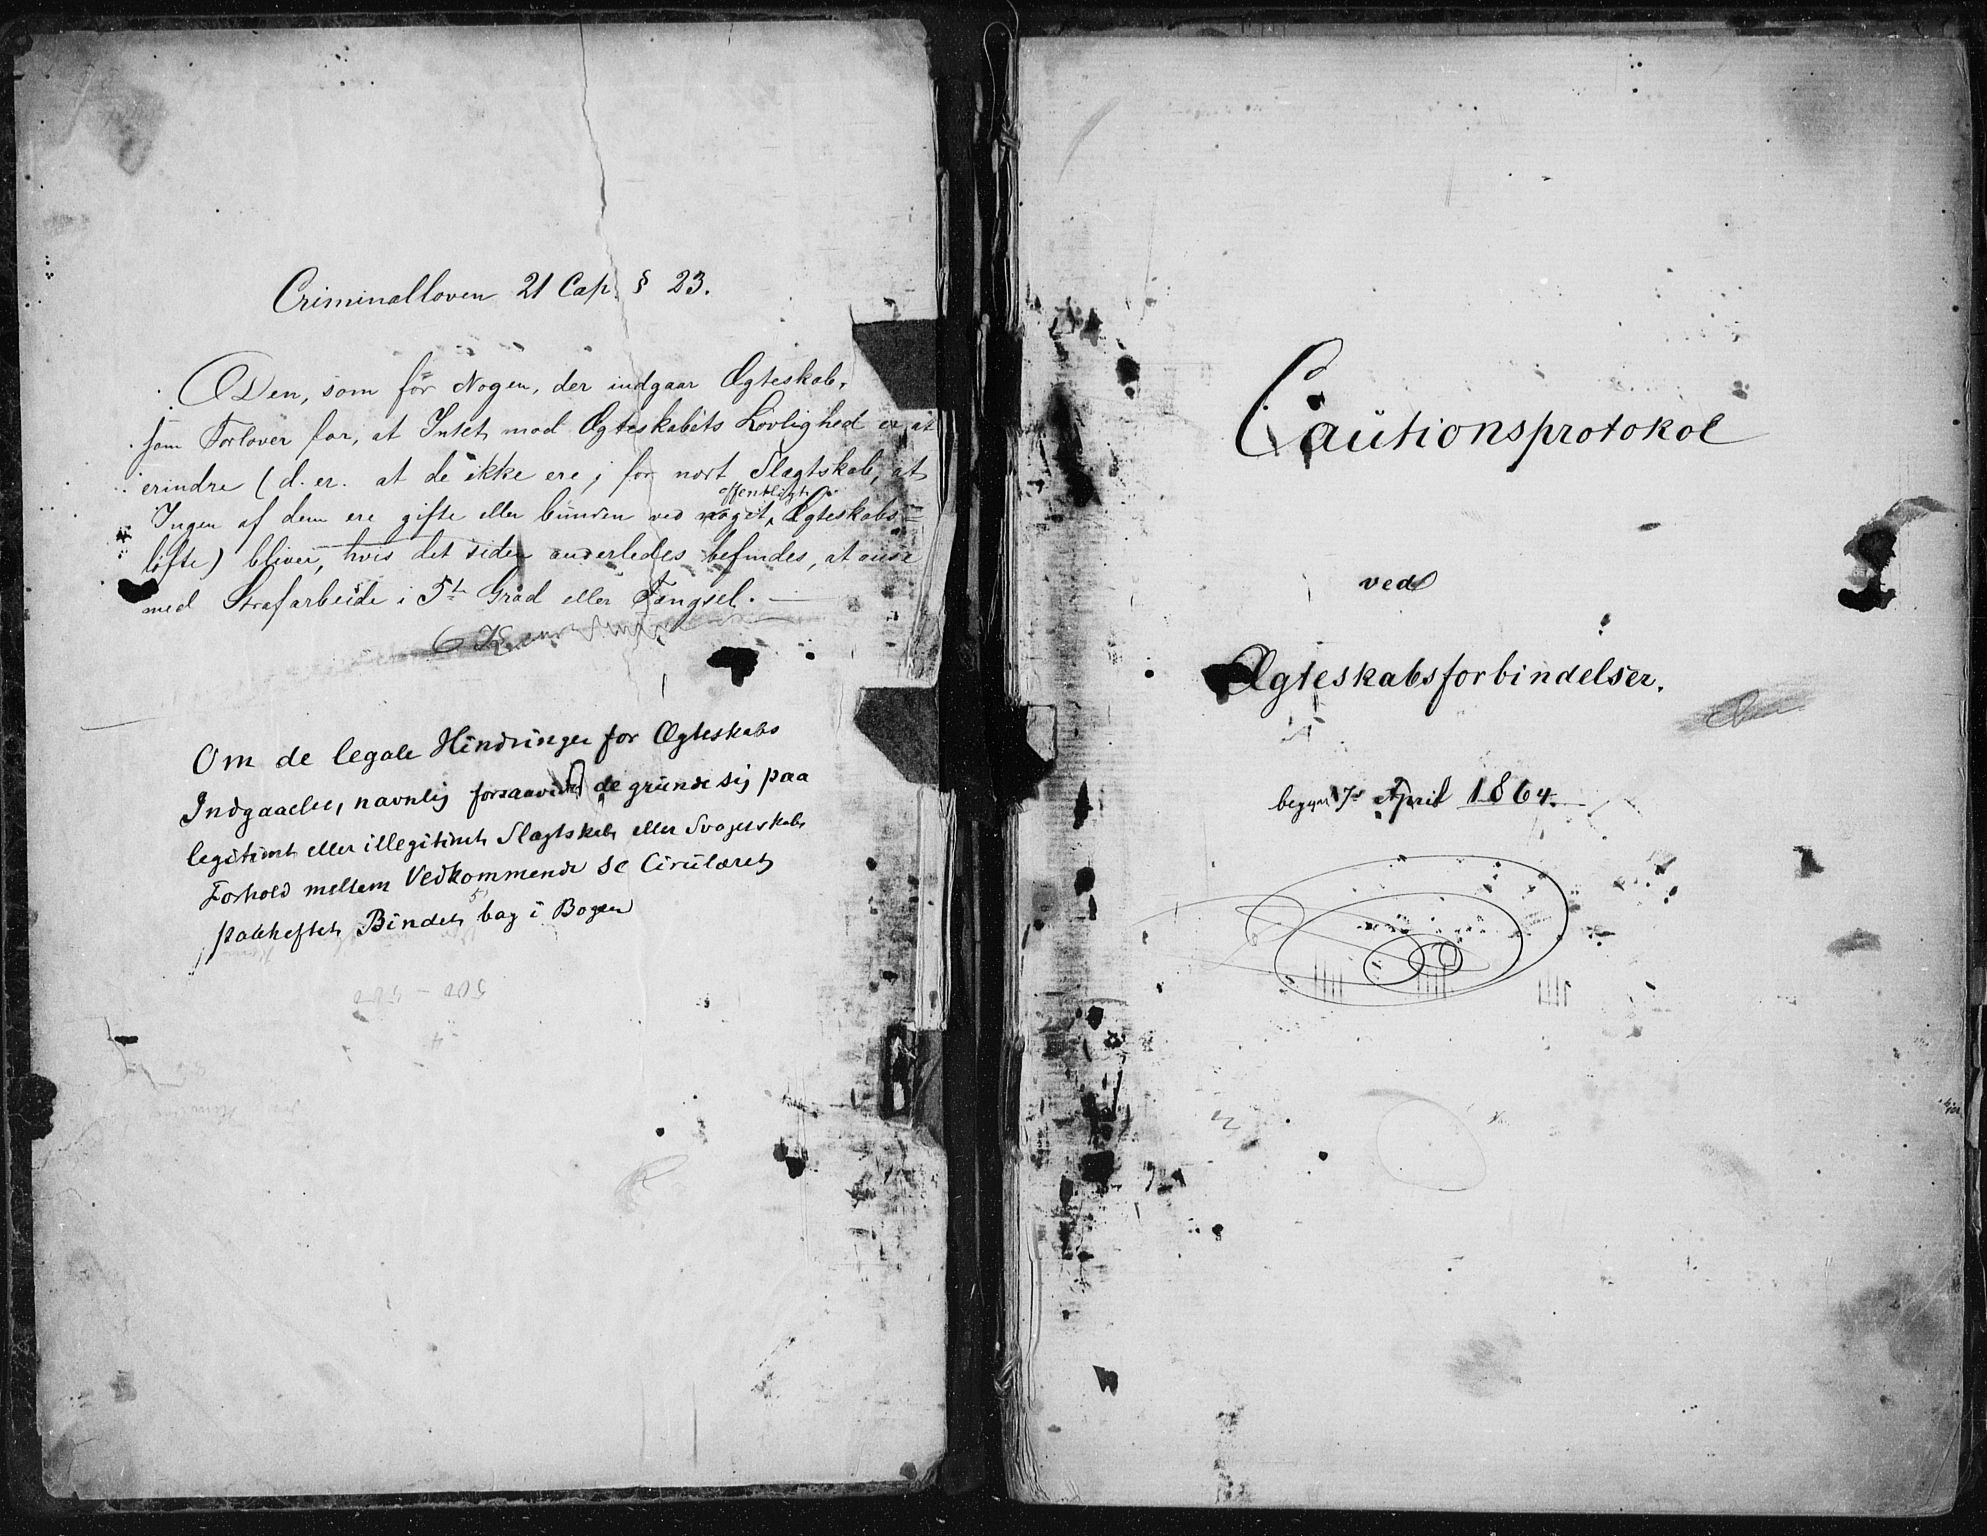 Criminalloven 21 Cap. § 23.
Den, som för Nogen, der indgaar Ægteskab,
som Forlover for, at Intet mod Ægteskabets Lovlighed er at
erindre (d. er. at de ikke ere i for nært Slægtskab, at
offentligt
Ingen af dem ere gifte eller bunden ved noget Ægteskabs=
løfte) bliver, hvis det siden anderledes befindes, at anse
med Strafarbeide i 5te Grad eller Fængsel.
Om de legale Hindringer for Ægteskabs
Indgaaelse, navnlig forsaavidt de grunde sig paa
legitimt eller illegitimt Slægtskabs eller Svogerskabs
Forhold mellem Vedkommende se Cirulæret
paaheftet Bindet bag i Bogen
500 - 500
Cautionsprotokol
ved
Ægteskabsforbindelser.
begynt 7de April 1864.